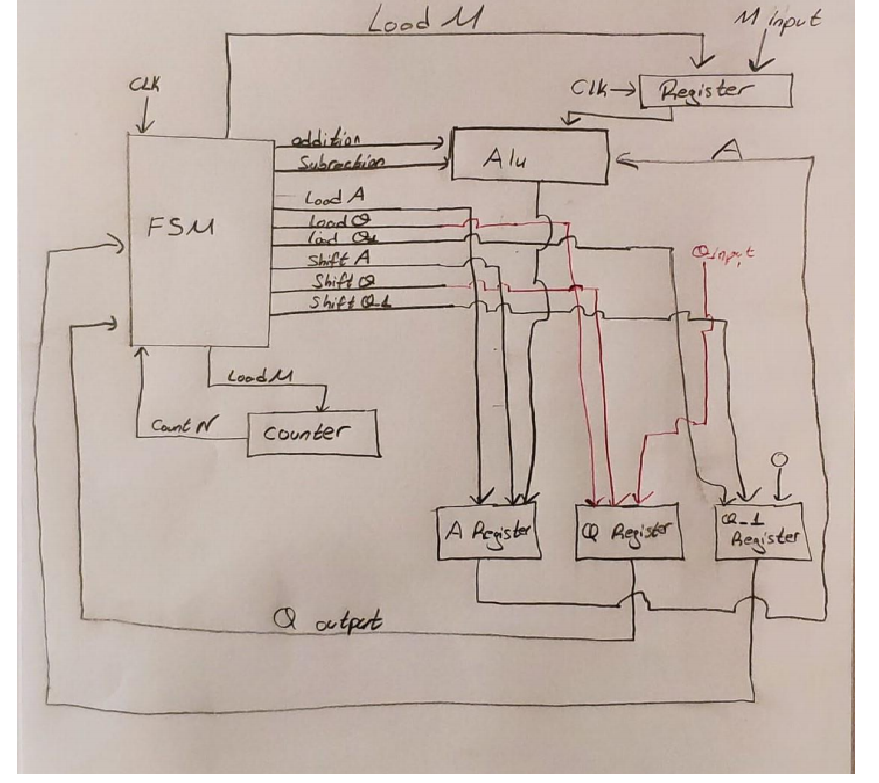 Load M
M input
CLK
Clk
Register
addition
Subraction
Alu
A
Load A
FSM
Load Q
Load Q-1
Shift A
Q input
Shift Q
Shift Q-1
Load M
Count N
Counter
0
A Register
Q Register
Q-1
Register
Q output